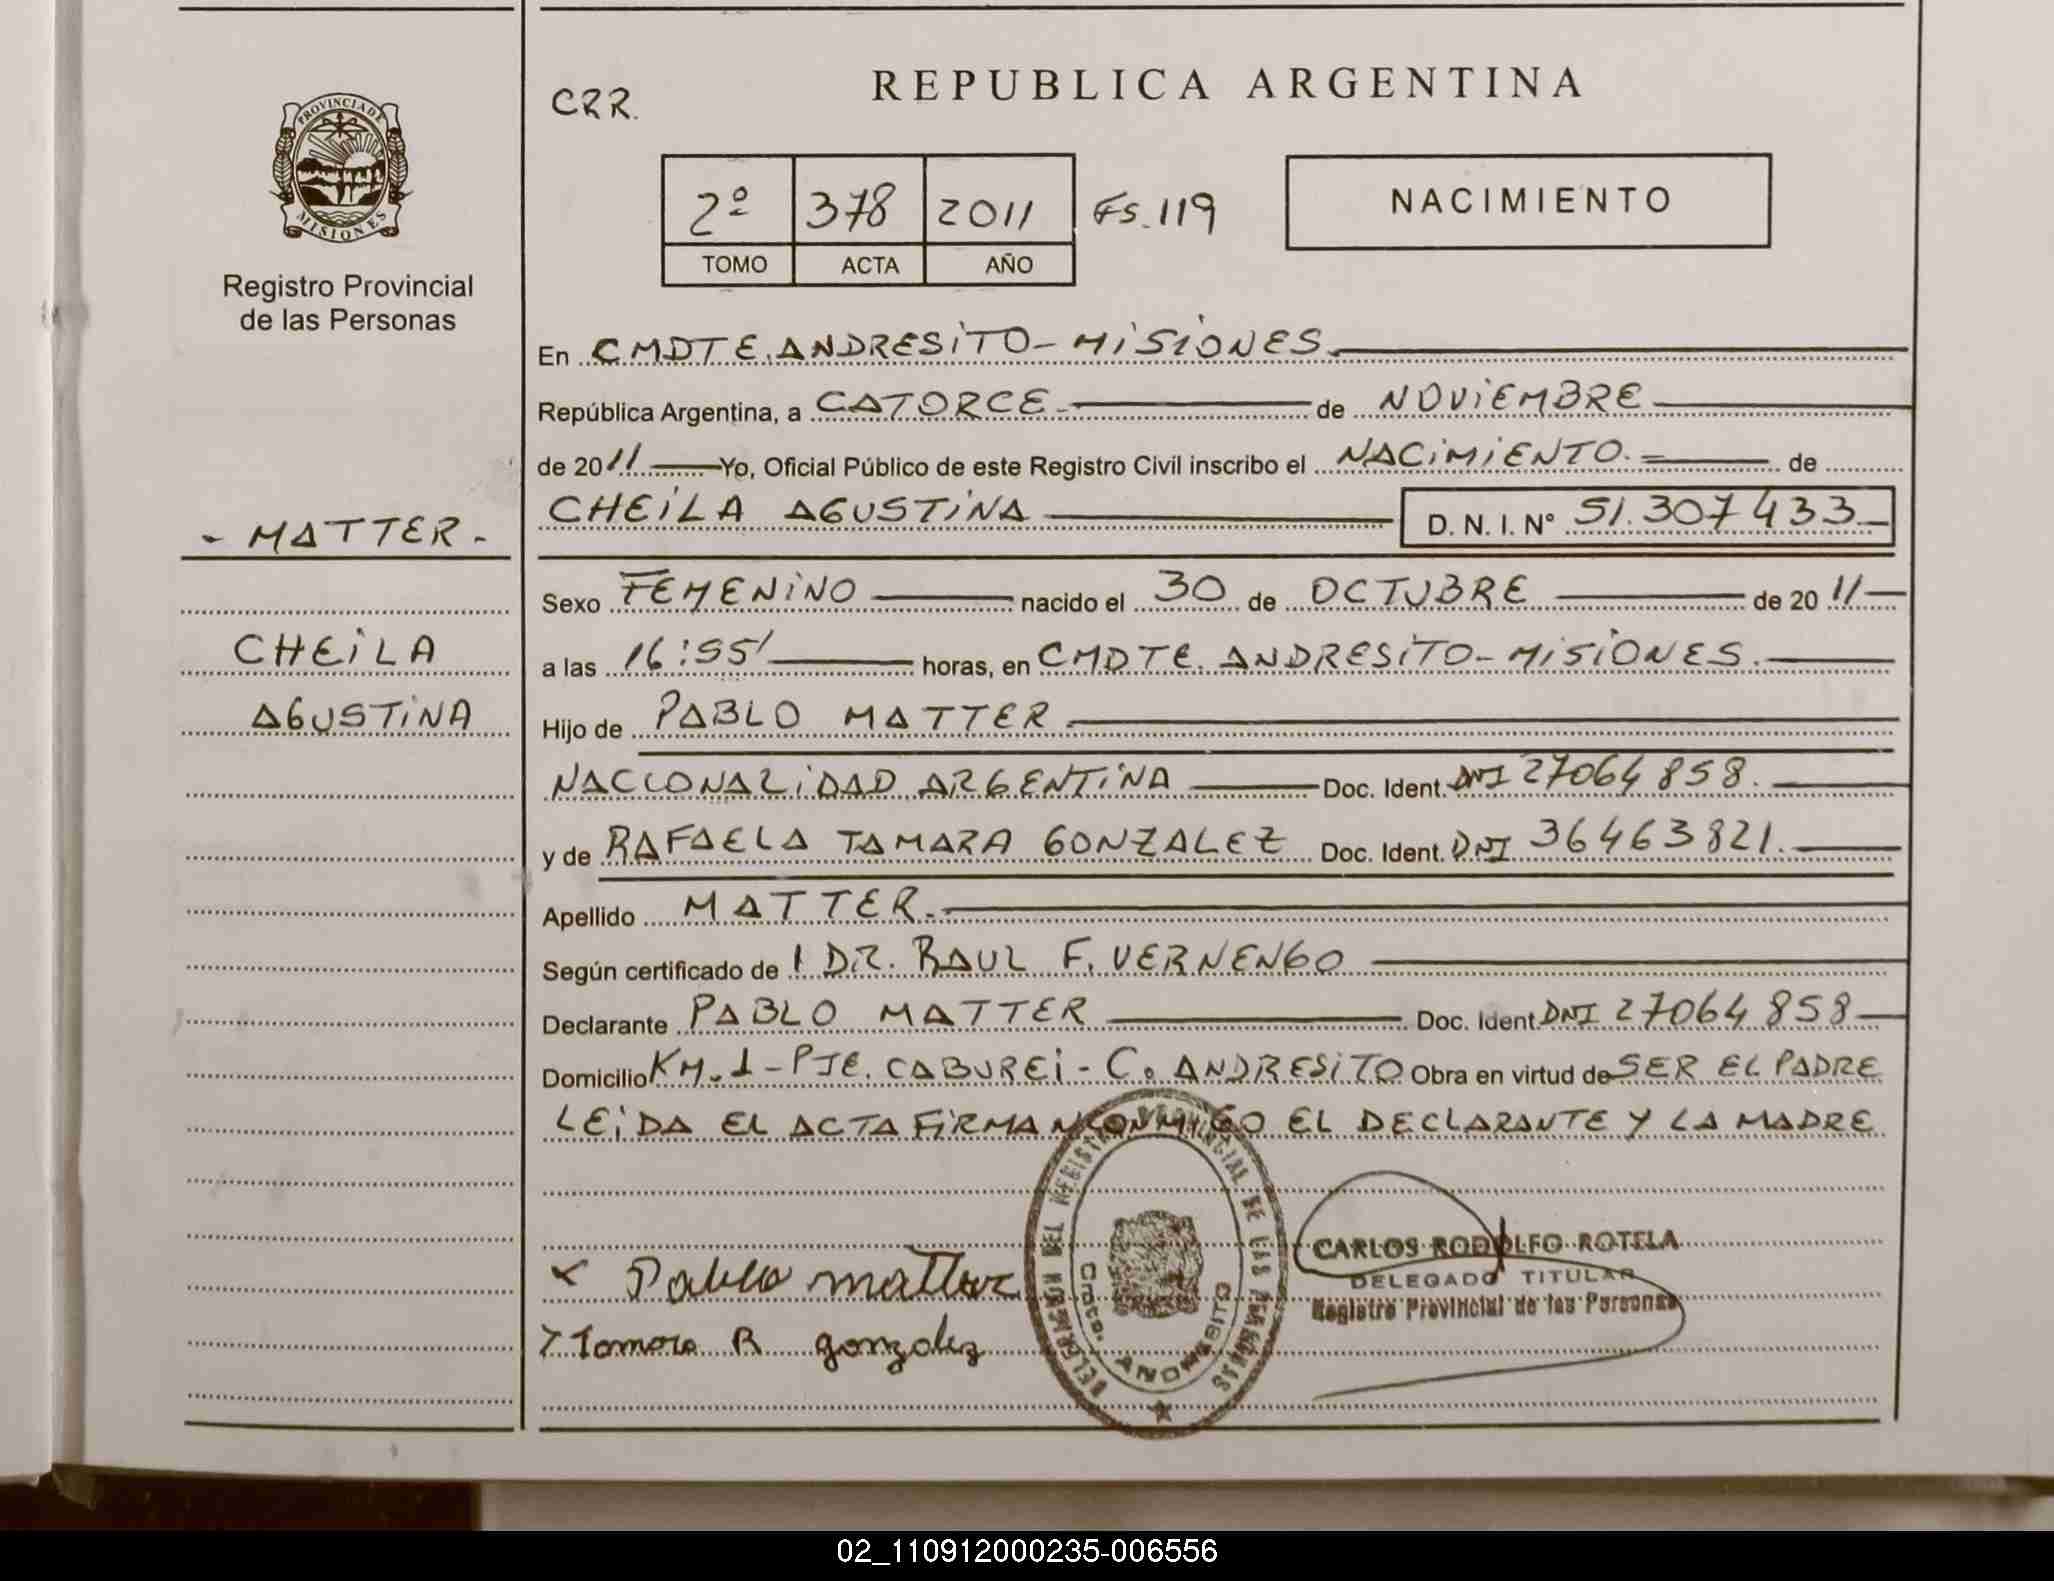 PROVINCIA DE
MISIONES
Registro Provincial
de las Personas
- MATTER -
CHEILA
AGUSTINA
CRR.
REPUBLICA ARGENTINA
2º 378 2011 Fs. 119
TOMO ACTA AÑO
NACIMIENTO
En CMDTE. ANDRESITO - MISIONES.
República Argentina, a CATORCE de NOVIEMBRE
de 2011 Yo, Oficial Público de este Registro Civil inscribo el NACIMIENTO. de
CHEILA AGUSTINA D. N. I. N° 51.307433
Sexo FEMENINO nacido el 30 de OCTUBRE de 2011
a las 16:55' horas, en CMDTE. ANDRESITO - MISIONES.
Hijo de PABLO MATTER
NACIONALIDAD ARGENTINA Doc. Ident. DNI 27064858.
y de RAFAELA TAMARA GONZALEZ Doc. Ident. DNI 36463821.
Apellido MATTER.
Según certificado de DR. RAUL F. VERNENGO
Declarante PABLO MATTER Doc. Ident. DNI 27064858
Domicilio KM. 1 - PJE. CABUREI - C. ANDRESITO Obra en virtud de SER EL PADRE
LEIDA EL ACTA FIRMAN CONMIGO EL DECLARANTE Y LA MADRE
x Pablo matter
Tamara R gonzalez
DELEGACION DEL REGISTRO PROVINCIAL DE LAS PERSONAS
Cmdte. ANDRESITO
CARLOS RODOLFO ROTELA
DELEGADO TITULAR
Registro Provincial de las Personas
02_110912000235-006556